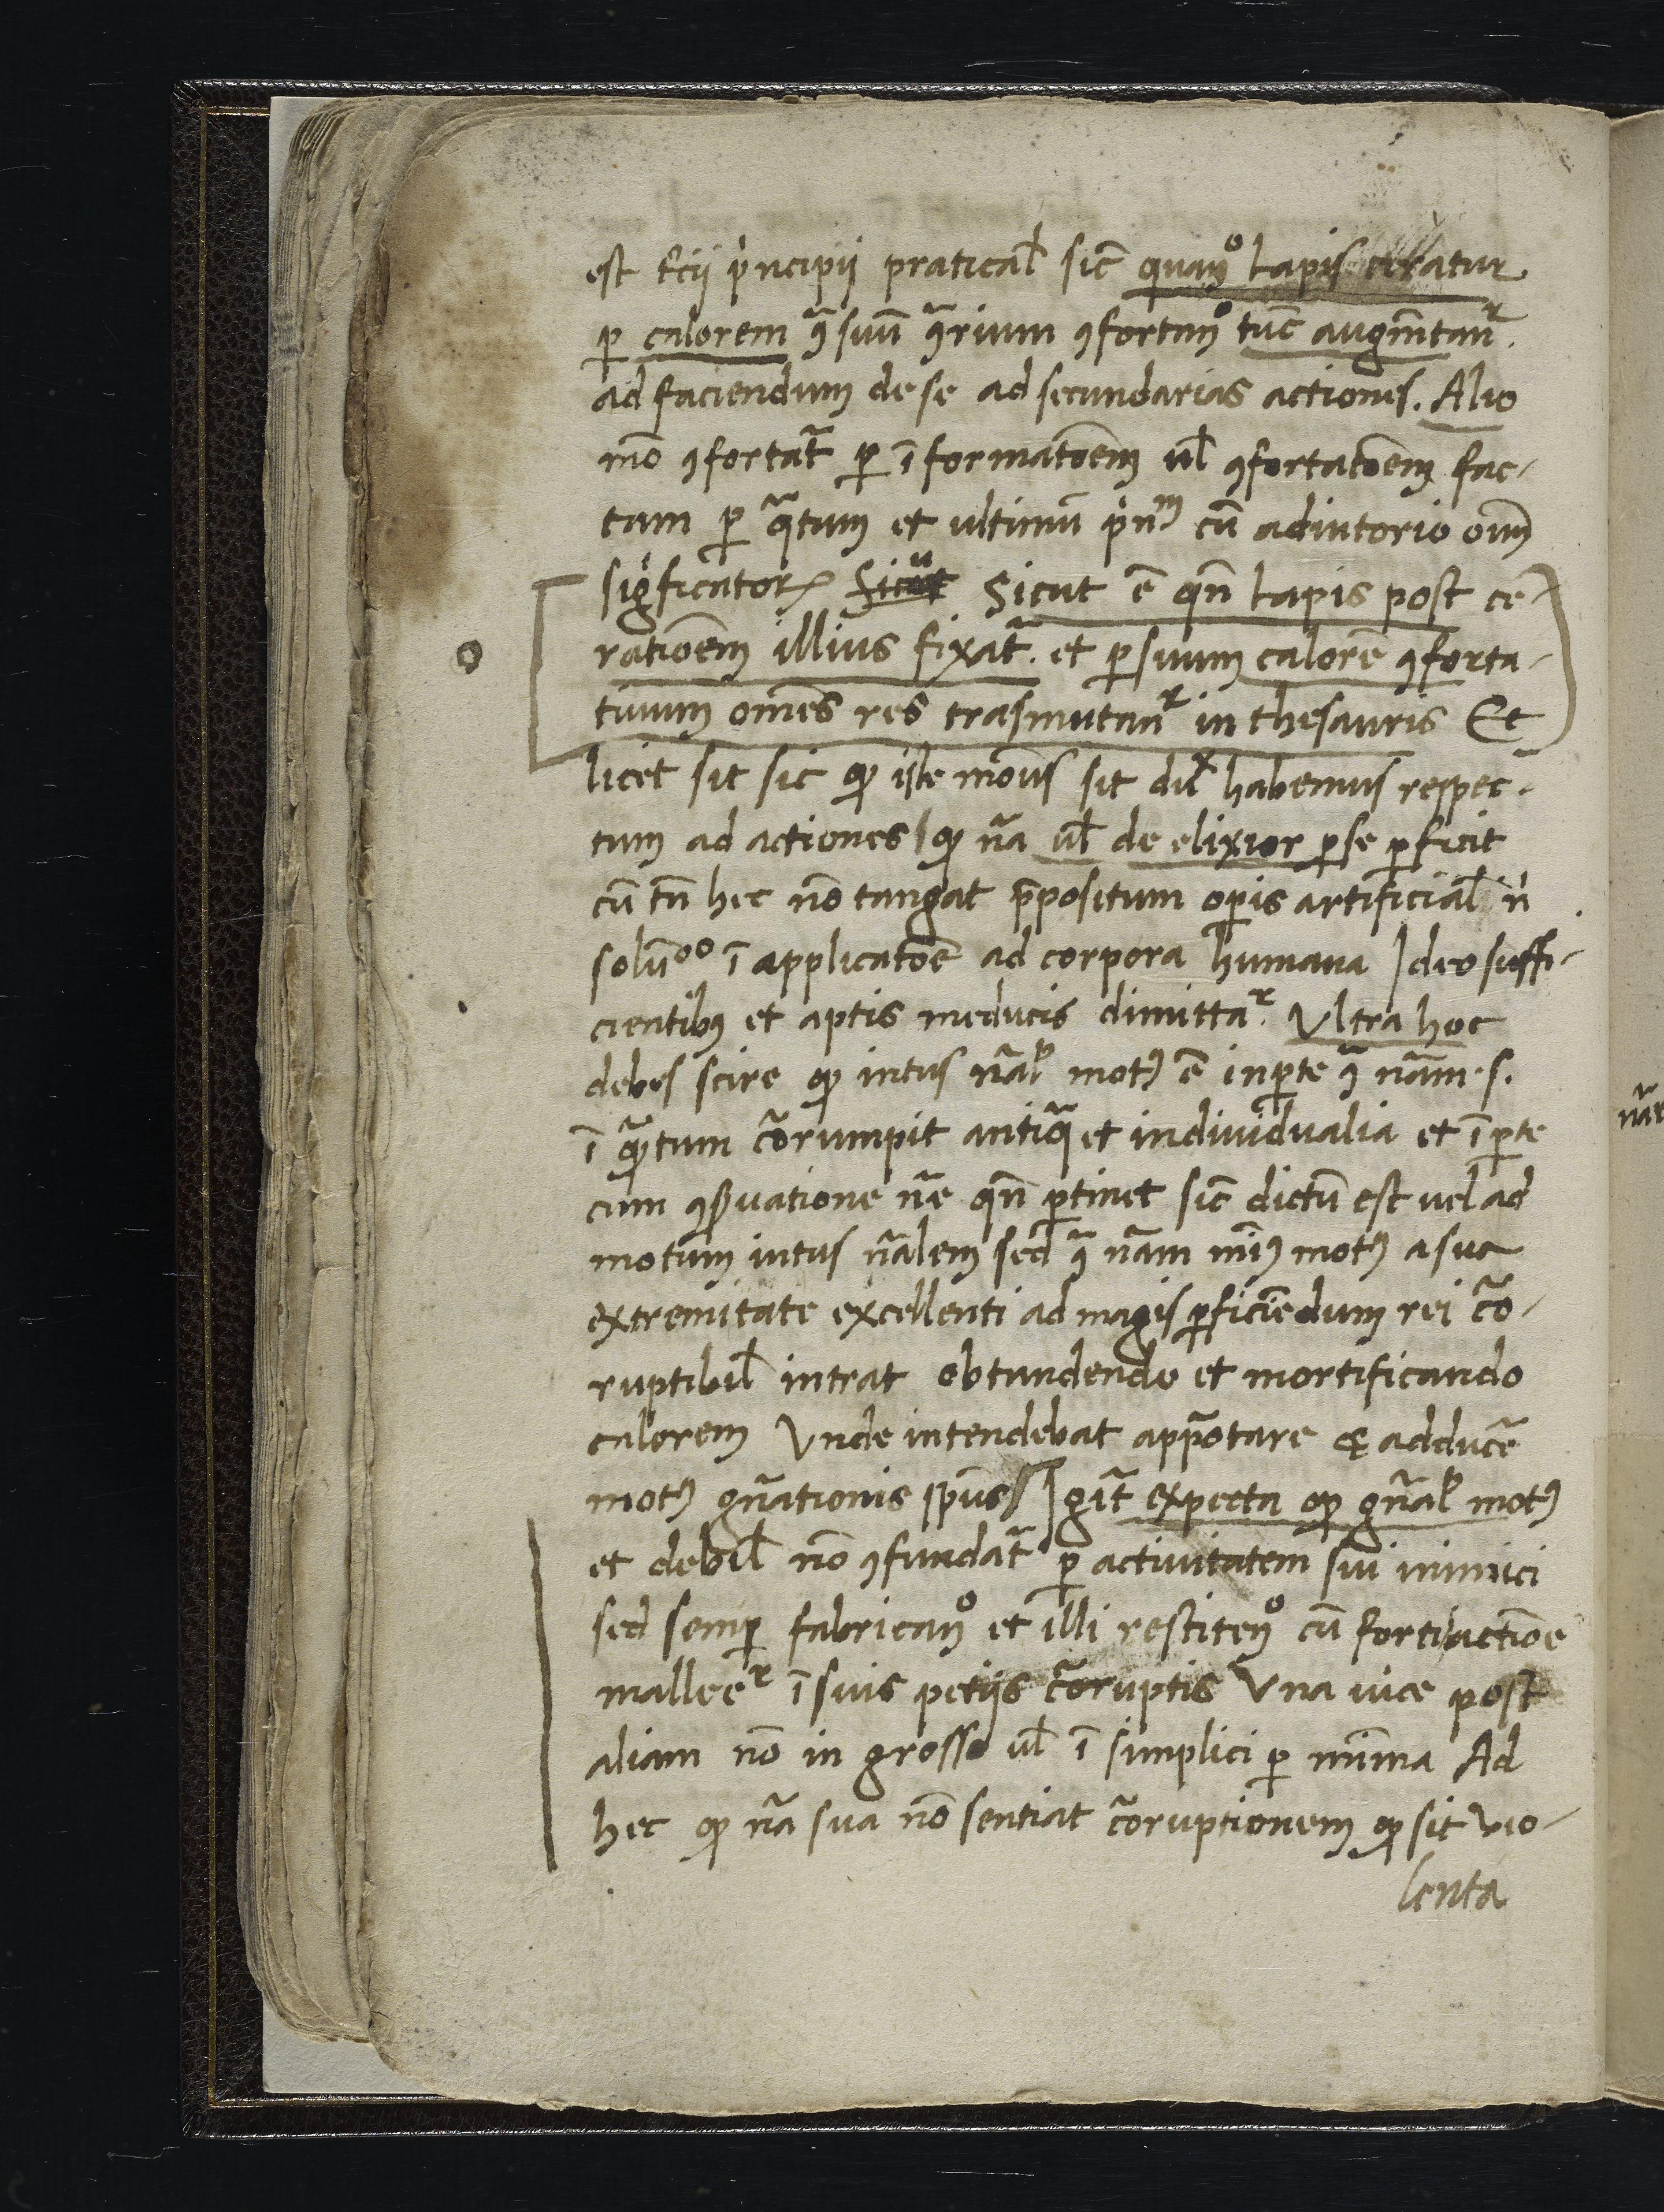 est t̃cij p̍ncipij praticał sic̃ quanꝰ lapis ceratur
ꝑ calorem ꝯ̃ suũ ꝯ̃rium ꝯfortanꝰ tũc augm̃tanr
ad faciendum de se ad secundarias actiones. Alio
mõ ꝯfortat̃ ꝑ ĩformatõem uł ꝯfortatõem fac-
tam ꝑ q̃tum et ultimũ p̍nm cũ adiutorio oim̃
sig̍ficatorꝝ Sicut Sicut ẽ qñ lapis post ce-
ratiõem illius fixat̃. et ꝑ suum calorẽ ꝯforta-
tiuum om̃es res trasmutanr in thesauris Et
licet sit sic ꝙ iste modus sit dul habemus respec-
tum ad actiones / ꝙ ña uł de elixior ꝑ se ꝑficit
cũ tñ hec nõ tangat p̃positum oꝑis artificiał n̍
solũoo ĩ applicatõe ad corpora humana Ideo suffi-
cientibꝰ et aptis medicis dimittar. Vltra hoc
debes scire ꝙ intus ñal motꝰ ẽ in ꝑte ꝯ̃ ñam .s.
ĩ q̃ꝫtum cõrumpit antiq̃ et indiuidualia et ĩ ꝑte
cum ꝯẞuatione ñe qñ ꝑtinet sic̃ dictũ est vel ad
motum intus ñalem sed ꝯ̃ ñam mĩꝰ motꝰ a sua
extremitate excellenti ad magis ꝑficiẽdum rei cõ-
ruptibił intrat obtundendo et mortificando
calorem Vnde intendebat app̃otare & adducẽ
motꝰ gñationis sp̃us // Igit̃ expecta ꝙ gñal motꝰ
et debił nõ ꝯfundat̃ ꝑ actiuitatem sui inimici
sed semꝑ fabricanꝰ et illi restitenꝰ cũ forti actiõe
malleer ĩ suis petijs cõruptis Vna uice post
aliam nõ in grosso uł ĩ simplici ꝑ mĩma Ad
hec ꝙ ña sua nõ sentiat cõruptionem ꝙ sit vio-
lenta